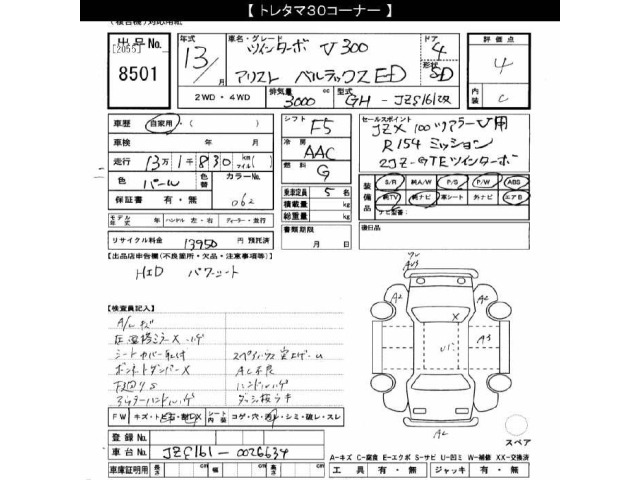 【 トレタマ30コーナー 】
出品No.
[2055]
8501
年式
13
月
車名・グレード
ツインターボ V300
アリスト ベルテックスED
ドア
4
形状
SD
評価点
4
内装
C
2WD・4WD
排気量
3000 cc
型式
GH-JZS161改
車歴 自家用・( )
車検 年 月
走行 13万1千830 km マイル
色 パール
色替
カラーNo. 062
保証書 有・無
モデル年式 年 ハンドル 左・右 ディーラー・並行
リサイクル料金 13950 円 預託済
シフト F5
冷房 AAC
燃料 G
乗車定員 5 名
積載量 kg
総重量 kg
書類期限
月 日
セールスポイント
JZX100ツアラーV用
R154ミッション
2JZ-GTEツインターボ
装備品
S/R 純A/W P/S P/W ABS
純TV 純ナビ 革シート 外ナビ エアB
ナビ型番:
後日品
【出品店申告欄(不良箇所・欠品・注意事項等)】
HID パワーシート
【検査員記入】
A/Lキズ
シートカバー取付
ボンネットダンパーX
下廻りS
AC不良
ハンドルハゲ
ダッシ板ウキ
FW キズ・トビ石・割・X シート内張 コゲ・穴・汚れ・シミ・破レ・スレ
登録No.
車台No. JZS161-0026634
車庫証明用 長さ cm 幅 cm 高さ cm
A2
A2
A3
X
A2
スペア
A-キズ C-腐食 E-エクボ S-サビ U-凹ミ W-補修 XX-交換済
工具 有・無 ジャッキ 有・無